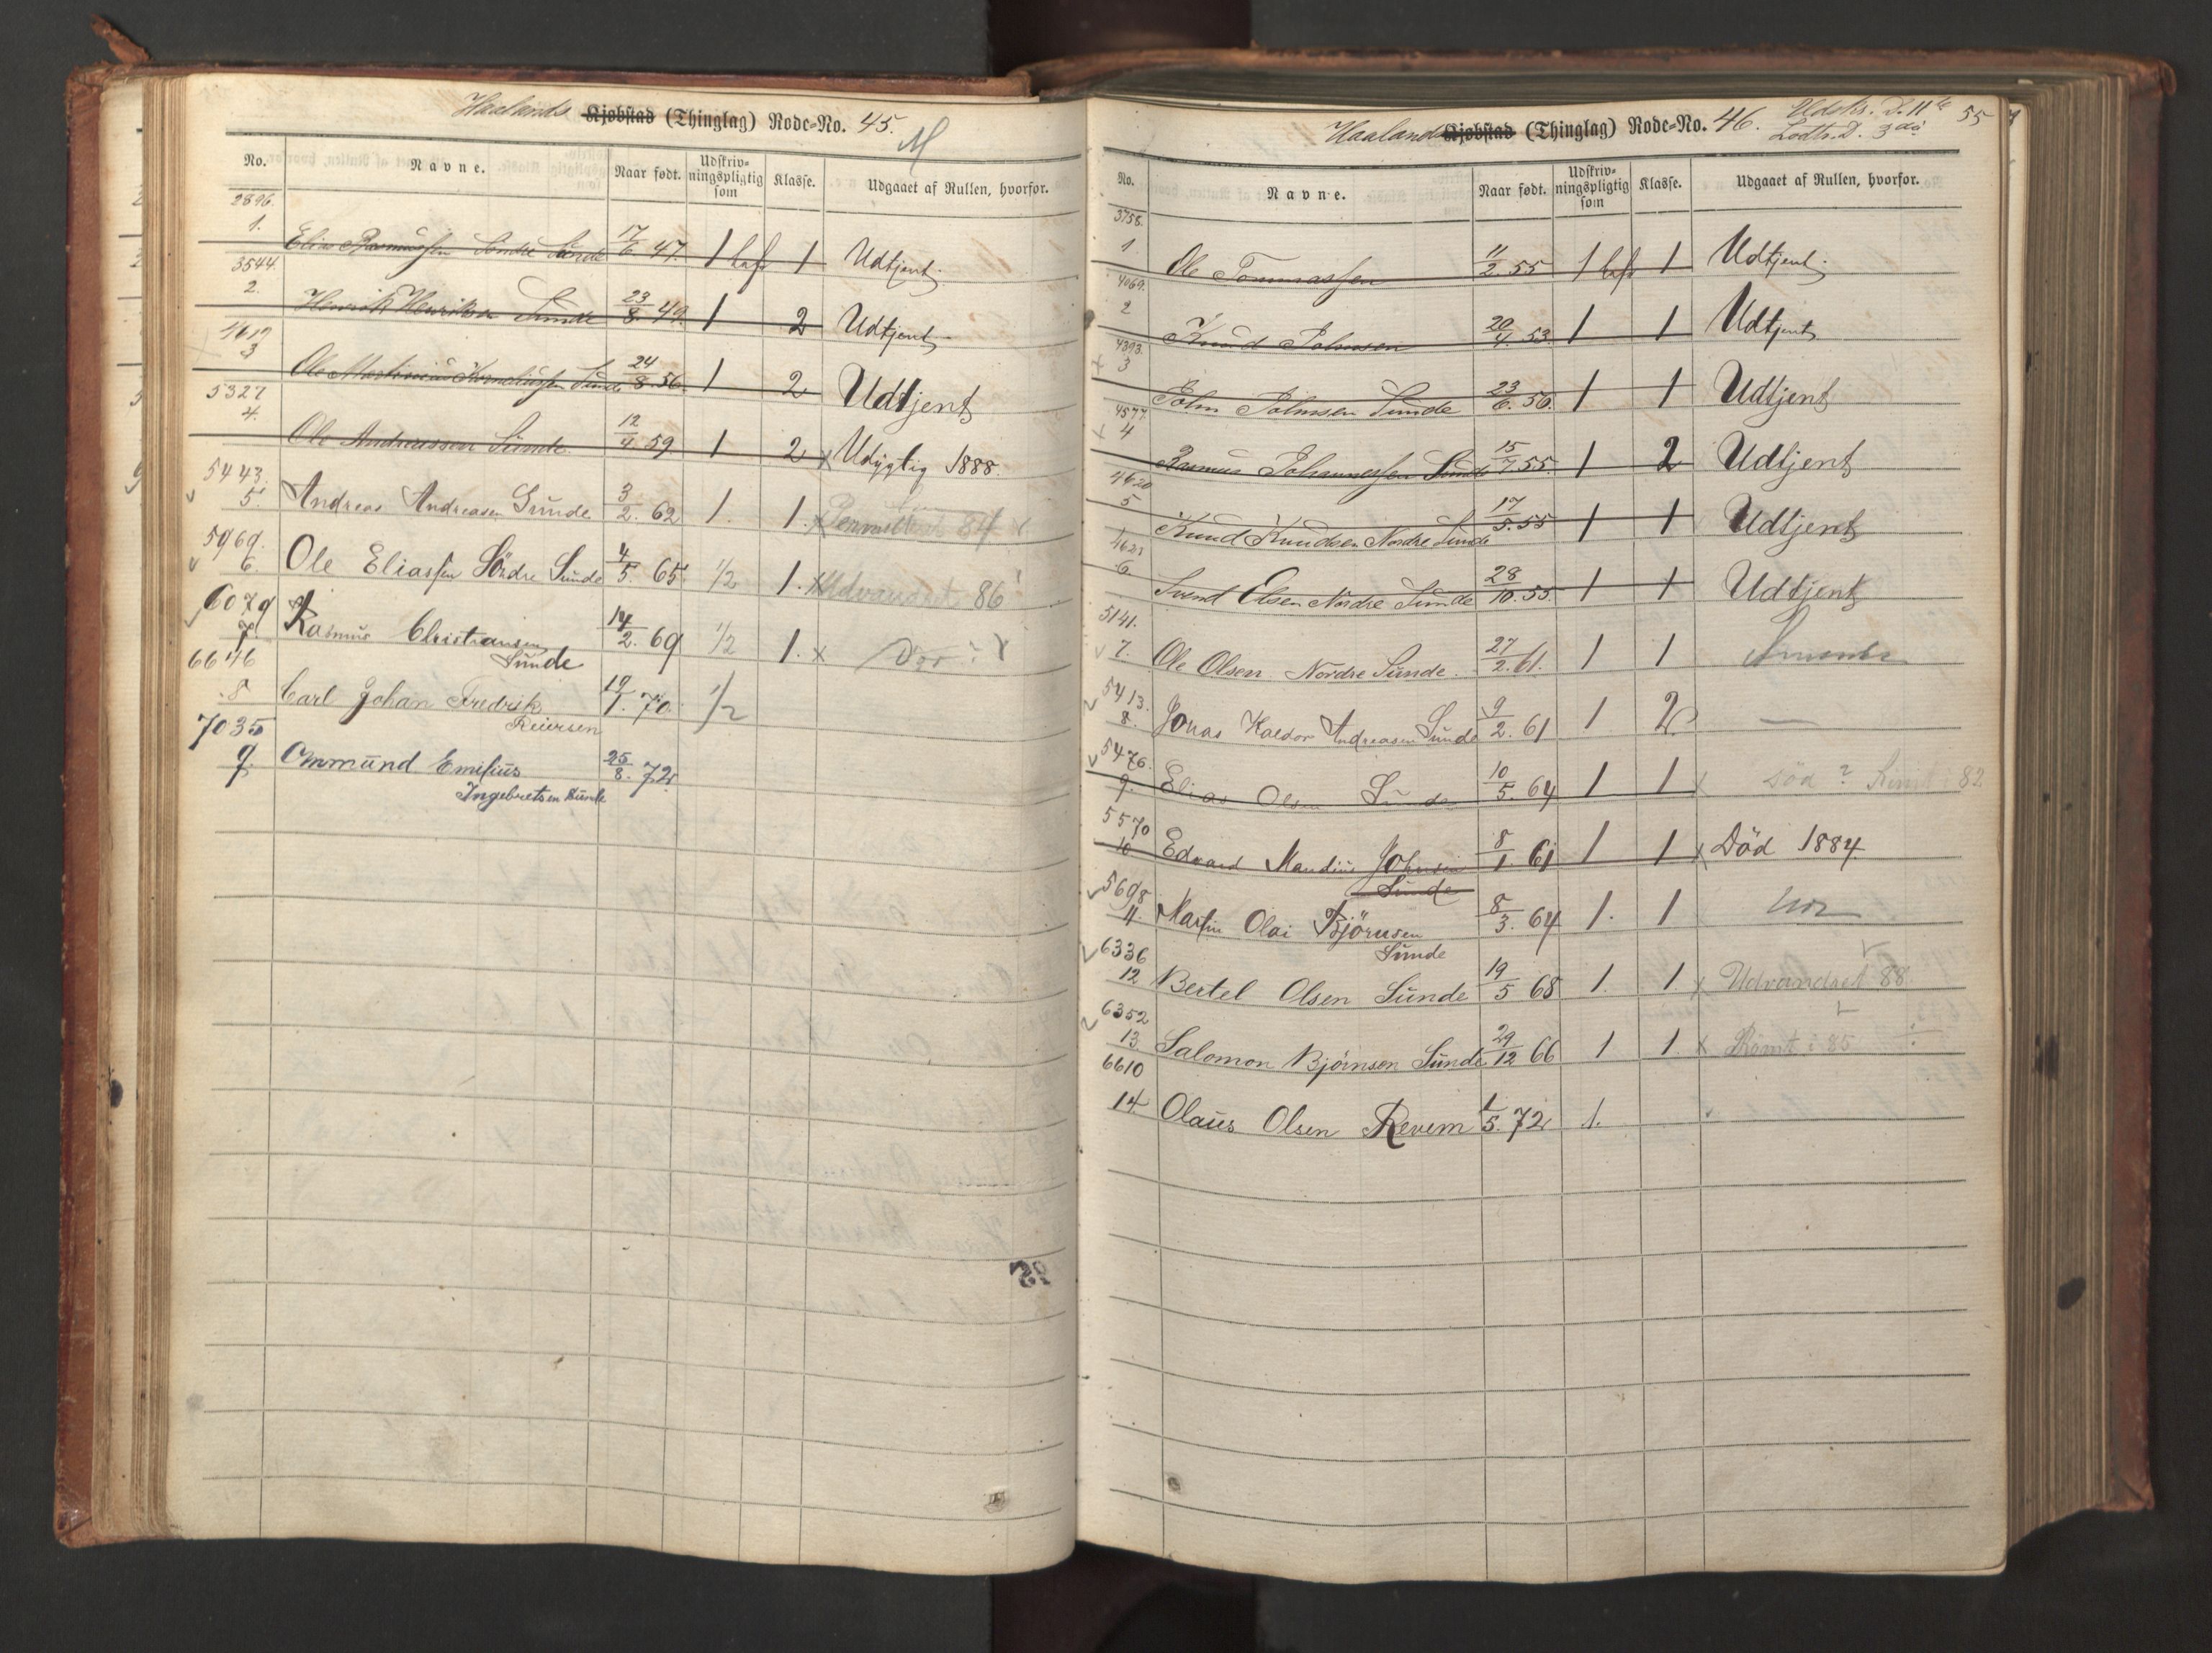 Haalands Kjøbstad (Thinglag) Rode-No. 45.
M
No. Navne. Naar født. Udskriv-ningspligtig som Klasse. Udgaaet af Rullen, hvorfor.
2896.
1. Elias Rasmussen Söndre Sunde 17/6. 47. 1 1 Udtjent.
3544.
2. Henrik Henriksen Sunde 23/8. 49. 1 2 Udtjent
4619
3 Ole Martinius Korneliussen Sunde 24/8. 56. 1 2 Udtjent
5327
4. Ole Andreassen Sunde 12/4. 59 1 2 x Udygtig 1888.
5443.
5. Andreas Andreasen Sunde 3/2. 62 1. 1. x 84
5969.
6. Ole Eliassen Söndre Sunde 4/5. 65. 1/2 1. x Udvandret 86
6079
7. Rasmus Christiansen 14/2. 69 1/2 1. x
Sunde
6646
8 Carl Johan Fredrik 19/1. 70. 1/2
Reiersen
7035
9. Ommund Emilius 25/8. 72.
Ingebretsen Sunde
Haalands Kjøbstad (Thinglag) Rode-No. 46.
Udskr. D. 11te 55
Lodtr. D. 3die
No. Navne. Naar født. Udskriv-ningspligtig som Klasse. Udgaaet af Rullen, hvorfor.
3758.
1 Ole Tommassen 11/2. 55 1 1 Udtjent.
4069.
2 Knud Johnsen 20/4. 53. 1 1 Udtjent
4393.
x 3 John Johnsen Sunde 23/6. 56. 1 1 Udtjent
4577
x 4 Rasmus Johannessen Sunde 15/7. 55. 1 2 Udtjent
4620
5 Knud Knudsen Nordre Sunde 17/5. 55 1 1 Udtjent
6. Svend Olsen Nordre Sunde 28/10. 55. 1 1 Udtjent
5141.
7. Ole Olsen Nordre Sunde. 27/2. 61. 1 1
5413.
8. Jonas Kaldor Andreasen Sunde 9/2. 61 1 2 —
5476.
9. Elias Olsen Sunde 10/5. 64 1 1 x Död ? Römt i 82
5570
10 Edvard Maudius Johnsen 8/1. 61 1 1 x Död 1884.
Sunde
5698
11. Martin Olai Björnsen 8/3. 64 1. 1
Sunde
6336
12 Bertel Olsen Sunde 19/5 68 1. 1. x Udvandret 88.
6352
13 Salomon Björnsen Sunde 29/12 66 1 1. x Römt i 85
6610
14. Olaus Olsen Revem 1/5. 72 1.